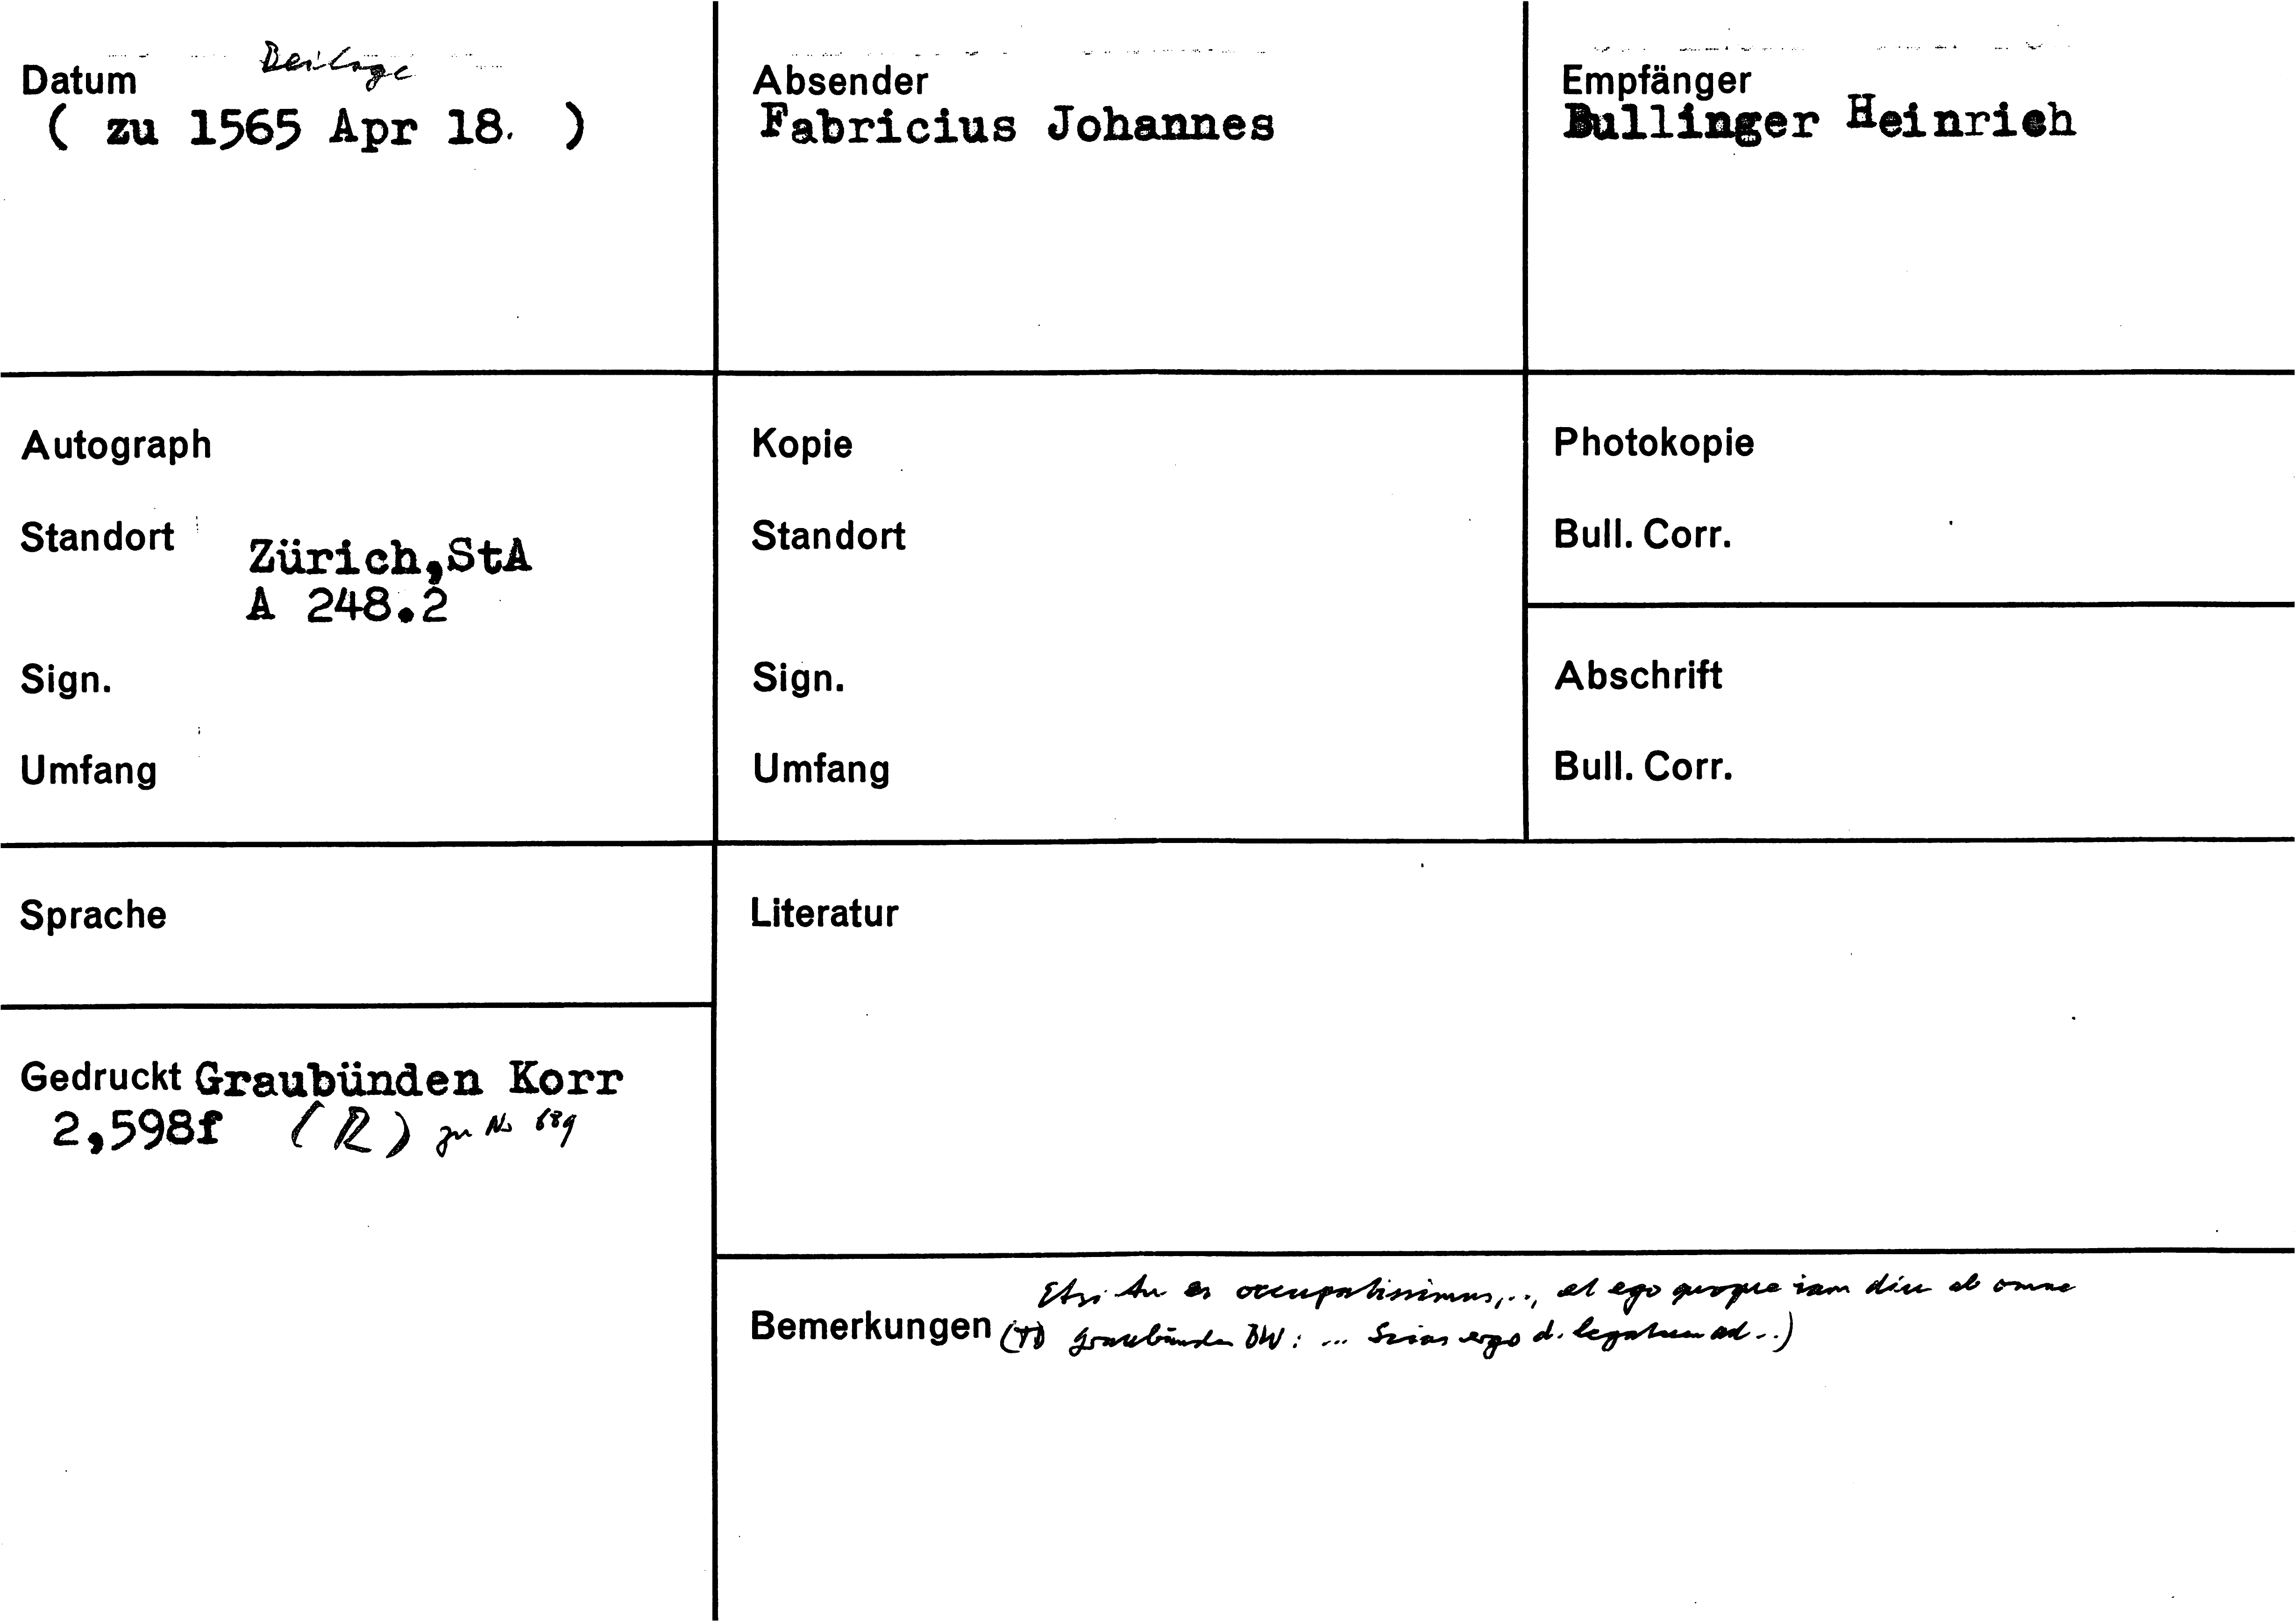 Datum Beilage
( zu 1565 Apr 18. )
Absender
Fabricius Johannes
Empfänger
Bullinger Heinrich
Autograph
Standort Zürich,StA
A 248.2
Sign.
Umfang
Kopie
Standort
Sign.
Umfang
Photokopie
Bull. Corr.
Abschrift
Bull. Corr.
Sprache
Gedruckt Graubünden Korr
2,598f (R) zu No 689
Literatur
Etsi tu es occupatissimus,.., et ego quoque iam diu ab omne
Bemerkungen ( Graubünden BW: ... Scias ergo d. legatum ad ..)